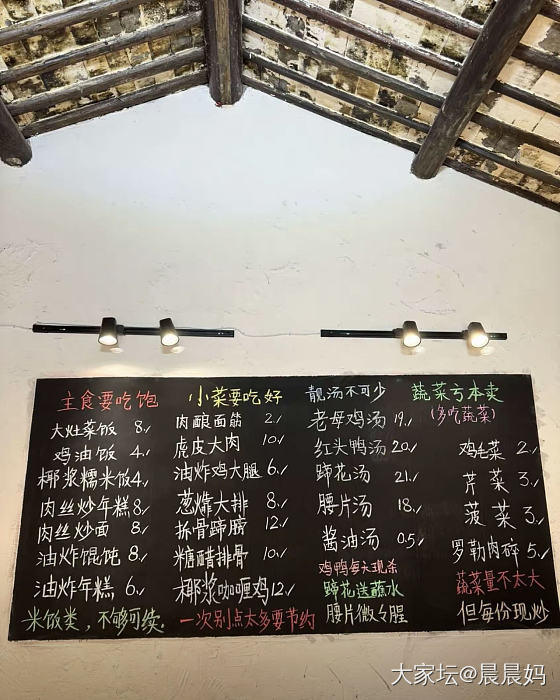 主食要吃饱
大灶菜饭 8/
鸡油饭 4/
椰浆糯米饭4/
肉丝炒年糕8/
肉丝炒面 8/
油炸馄饨 8/
油炸年糕 6/
米饭类，不够可续.
小菜要吃好
肉酿面筋 2/
虎皮大肉 10/
油炸鸡大腿 6/
葱㸆大排 8/
拆骨蹄膀 12/
糖醋排骨 10/
椰浆咖喱鸡12/
一次别点太多要节约
靓汤不可少
老母鸡汤 19/
红头鸭汤 20/
蹄花汤 21/
腰片汤 18/
酱油汤 0.5/
鸡鸭每天现杀
蹄花送蘸水
腰片微令腥
蔬菜亏本卖
(多吃蔬菜)
鸡毛菜 2/
芹菜 3/
菠菜 3/
罗勒肉碎 5/
蔬菜量不太大
但每份现炒
大家坛@晨晨妈